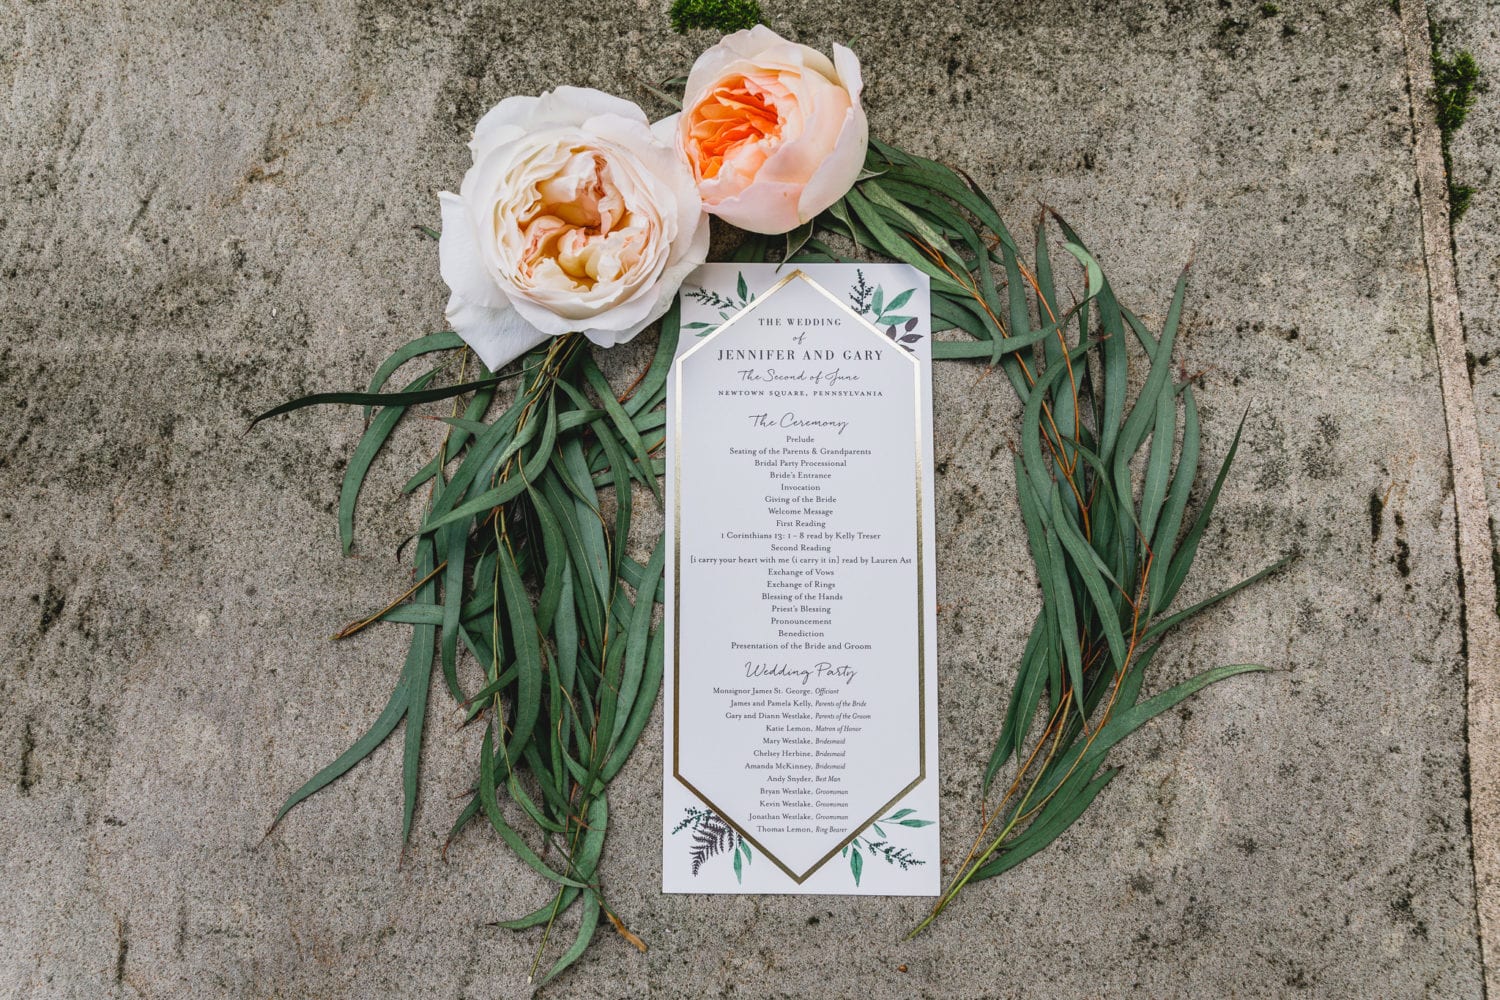 THE WEDDING
of
JENNIFER AND GARY
The Second of June
NEWTOWN SQUARE, PENNSYLVANIA
The Ceremony
Prelude
Seating of the Parents & Grandparents
Bridal Party Processional
Bride's Entrance
Invocation
Giving of the Bride
Welcome Message
First Reading
1 Corinthians 13: 1 - 8 read by Kelly Treser
Second Reading
[i carry your heart with me (i carry it in] read by Lauren Ast
Exchange of Vows
Exchange of Rings
Blessing of the Hands
Priest's Blessing
Pronouncement
Benediction
Presentation of the Bride and Groom
Wedding Party
Monsignor James St. George, Officiant
James and Pamela Kelly, Parents of the Bride
Gary and Diann Westlake, Parents of the Groom
Katie Lemon, Matron of Honor
Mary Westlake, Bridesmaid
Chelsey Herbine, Bridesmaid
Amanda McKinney, Bridesmaid
Andy Snyder, Best Man
Bryan Westlake, Groomsman
Kevin Westlake, Groomsman
Jonathan Westlake, Groomsman
Thomas Lemon, Ring Bearer